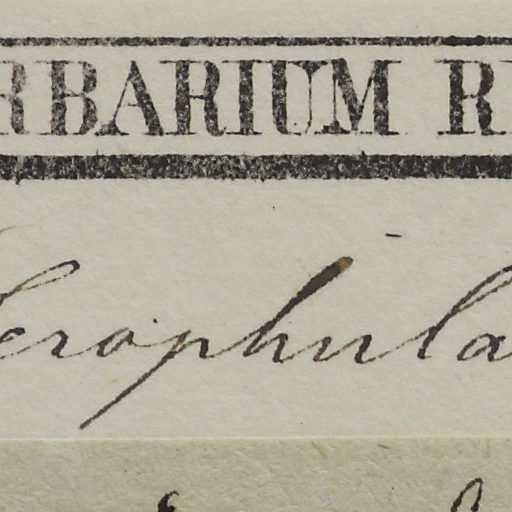 RBARIUM R
erophila